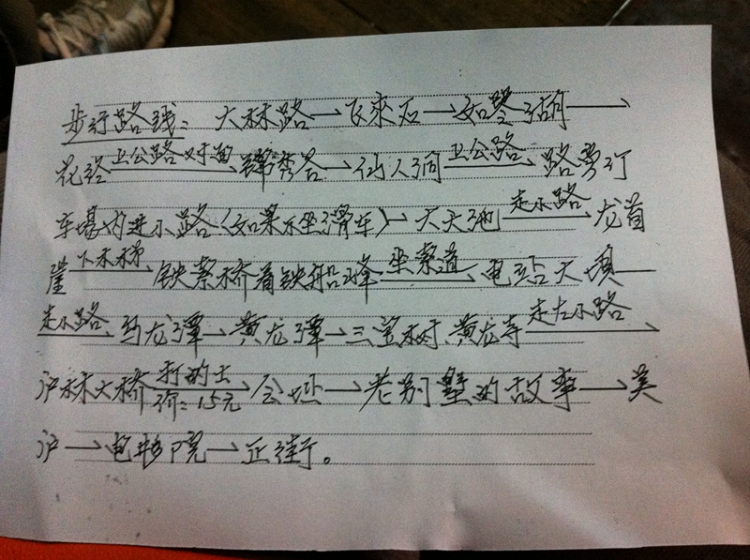 步行路线：大林路→飞来石→如琴湖→
花径 上公路对面→锦秀谷→仙人洞 上公路→路旁汀
车场内进小路（如果不坐滑车）→大天池 走小路→龙首
崖 下木梯→铁索桥看铁船峰 坐索道→电站大坝—
走小路→乌龙潭→黄龙潭→三宝树、黄龙寺 走左小路→
芦林大桥 打的士 价：15元→会址→老别墅的故事→美
庐→电影院→正街。